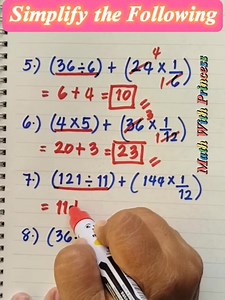 Simplify the Following
5.) (36÷6) + (24×1/6)
4
1
= 6 + 4 = 10
6.) (4×5) + (36×1/12)
3
1
= 20+3 = 23
7.) (121÷11) + (144×1/12)
= 11
8.) (36
Math With Princess